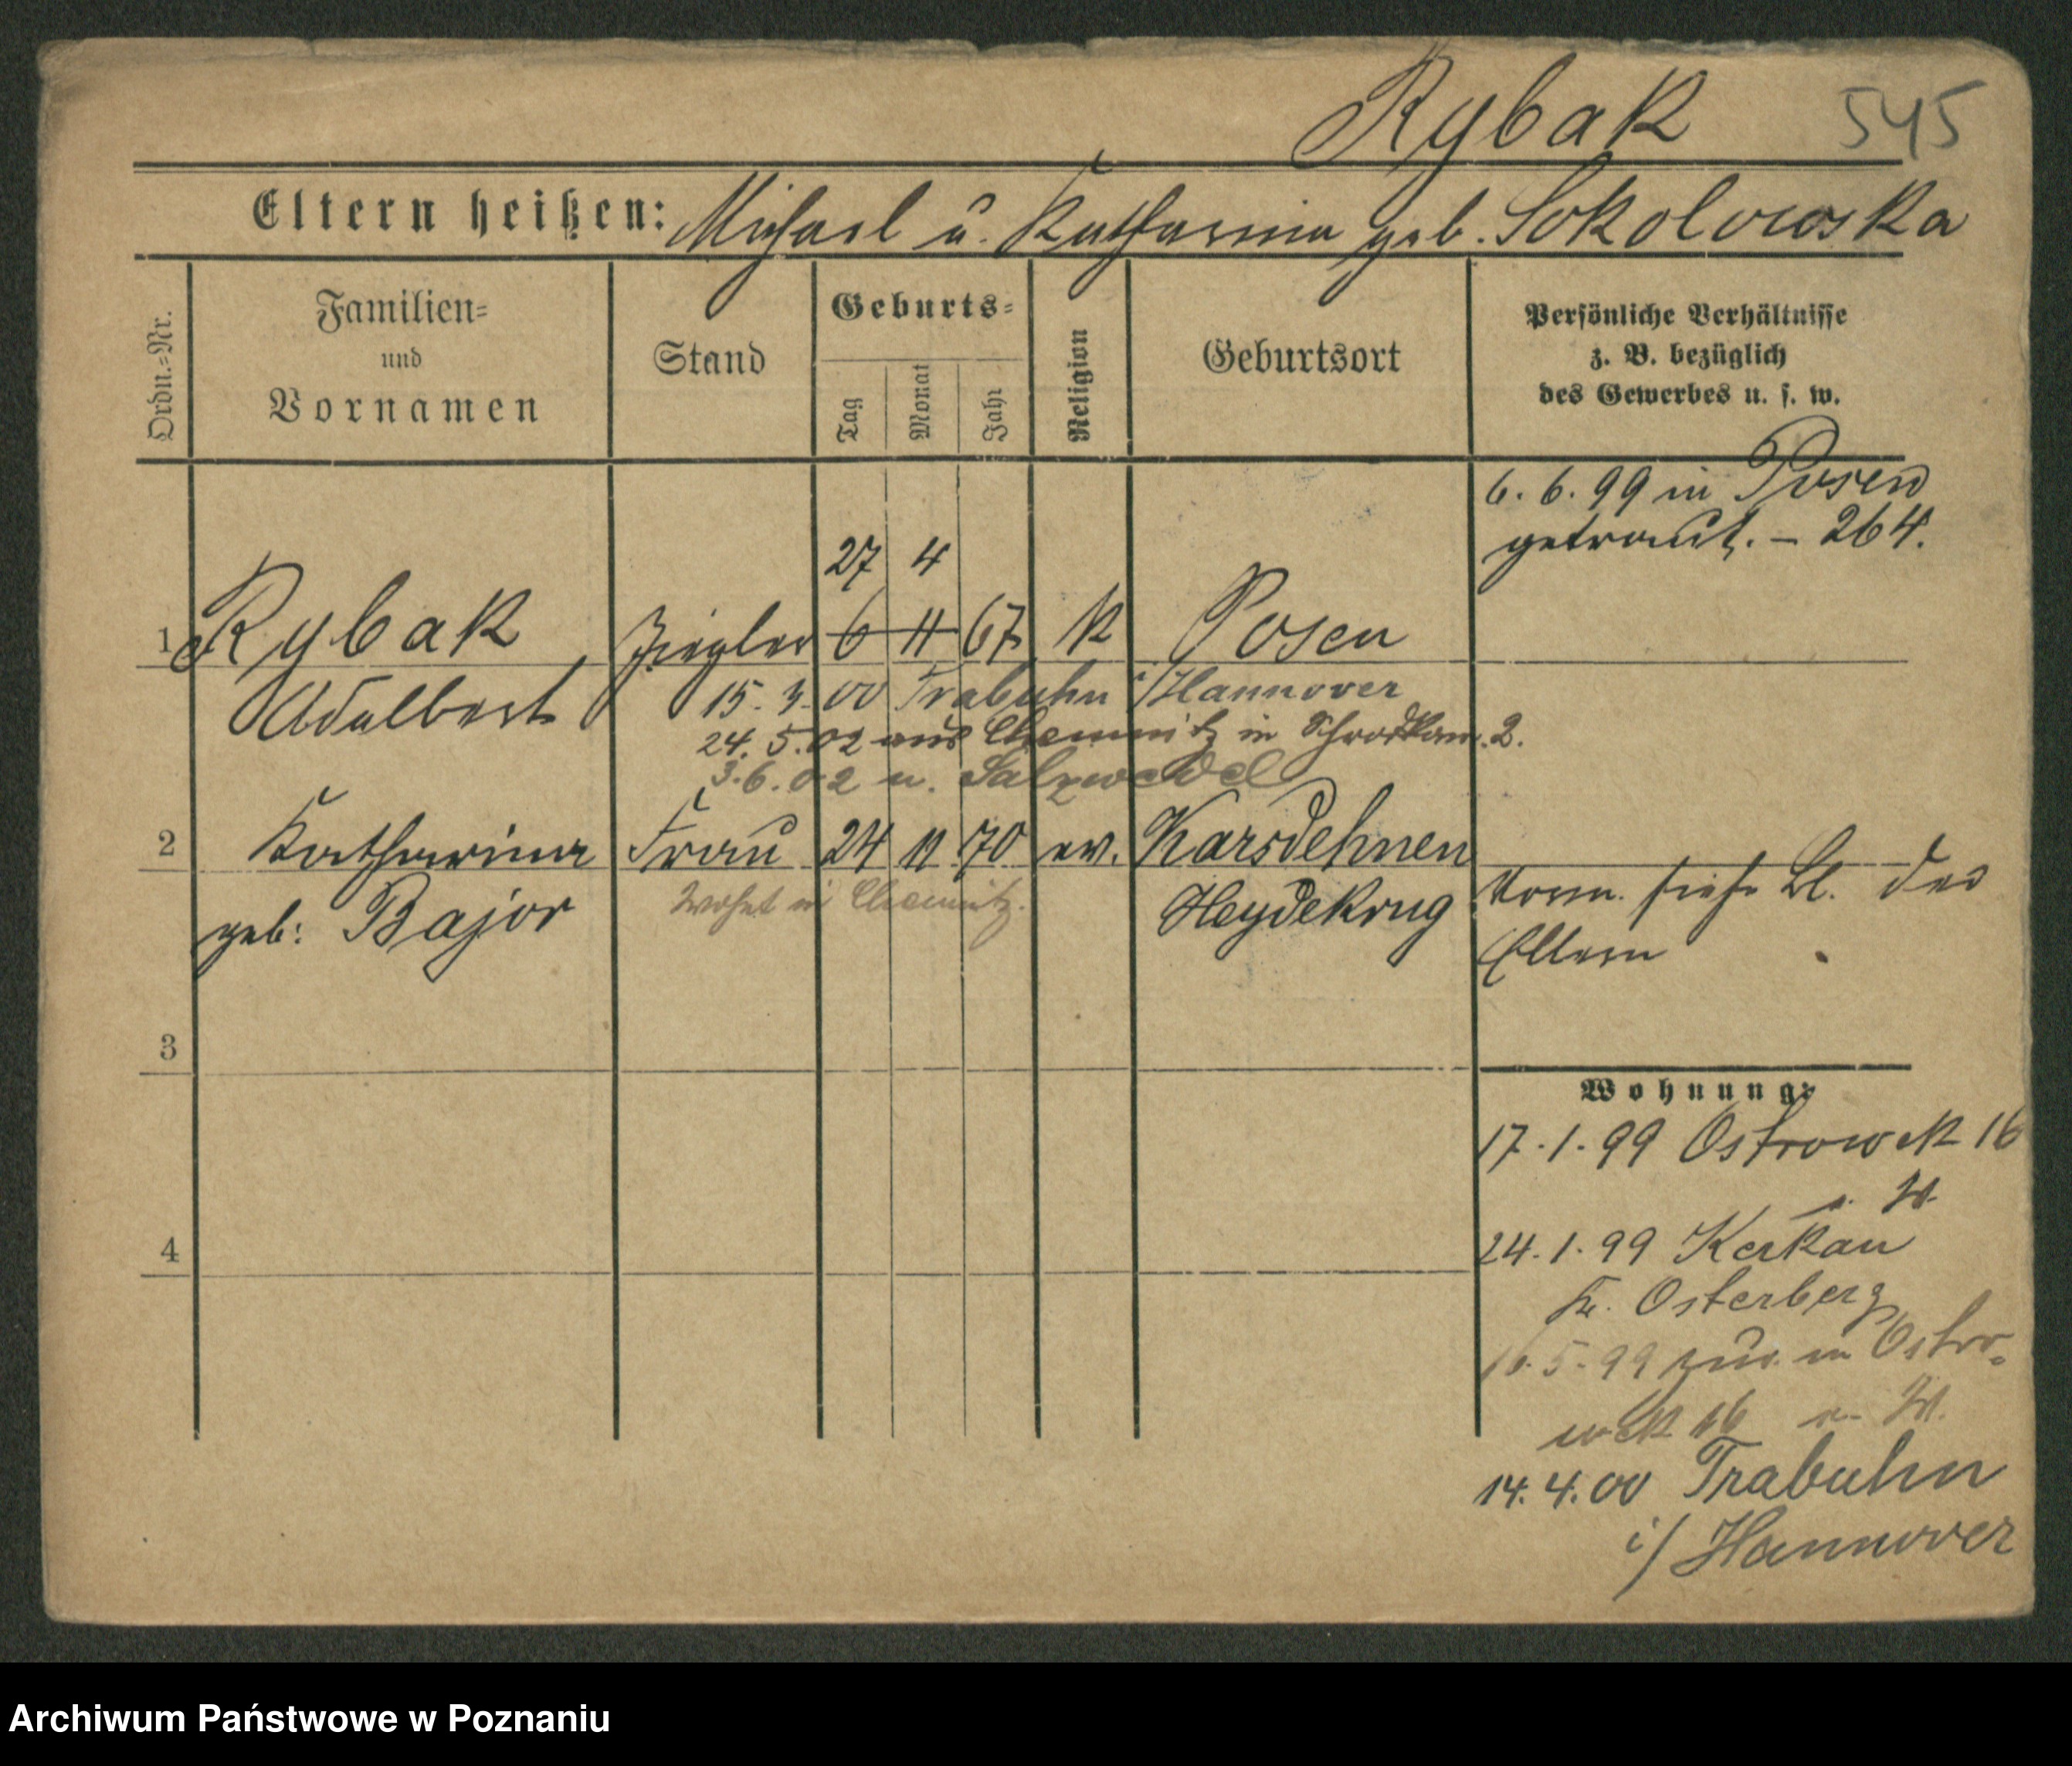 Rybak 545
Eltern heißen: Michael u. Katharina geb. Sokolowska
Ordn.=Nr.
Familien=
und
Vornamen
Stand
Geburts=
Tag
Monat
Jahr
Religion
Geburtsort
Persönliche Verhältnisse
z. B. bezüglich
des Gewerbes u. s. w.
6. 6. 99 in Posen
getraut. – 264.
27 4
1 Rybak Ziegler 6 11 67 K Posen
Adalbert 15. 4. 00 Trabuhn i/Hannover
24. 5. 02 aus Chemnitz in Schrodkam. 2.
3. 6. 02 n. Salzwedel
2 Katharina Frau 24 11 70 ev. Karsdehnen
geb: Bajor wohnt in Chemnitz. Heydekrug
Vorm. siehe Bl. der
Eltern
3
4
Wohnung:
17. 1. 99 Ostrowek 16
b. W.
24. 1. 99 Kerkau
Kr. Osterberg
16. 5. 99 zur. in Ostro-
wek 16 b. W.
14. 4. 00 Trabuhn
i/ Hannover
Archiwum Państwowe w Poznaniu